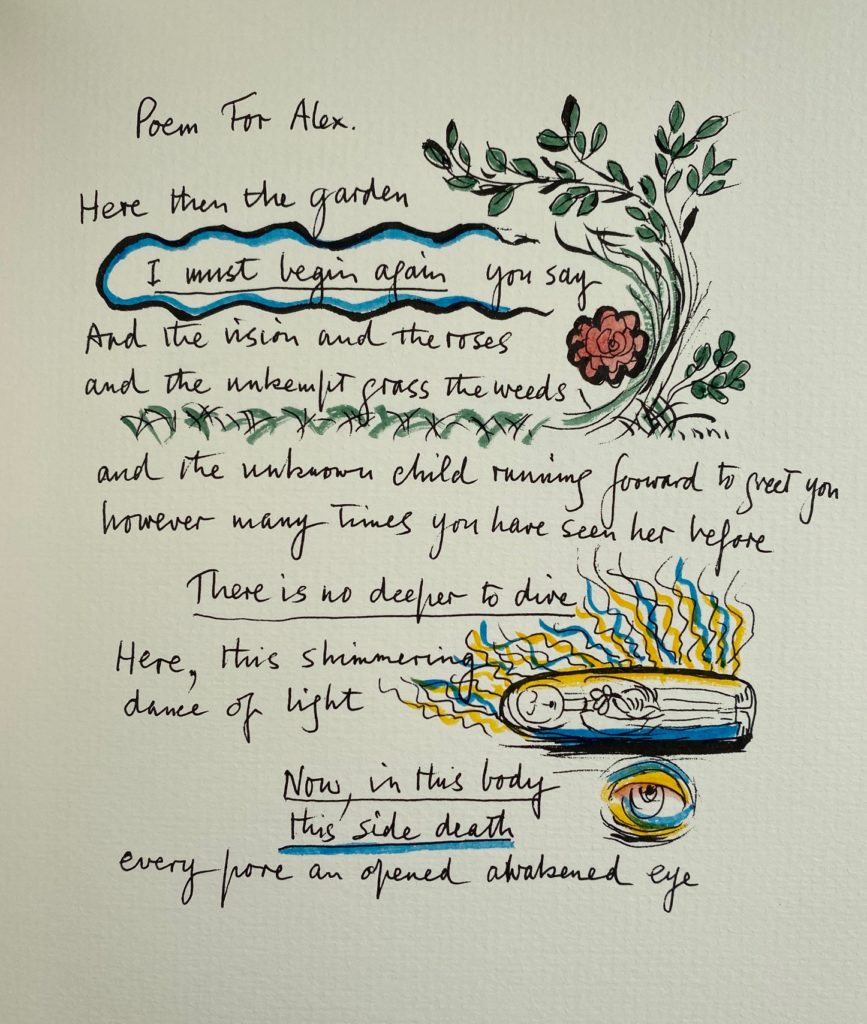 Poem For Alex.
Here then the garden
I must begin again you say
And the vision and the roses
and the unkempt grass the weeds
and the unknown child running forward to greet you
however many times you have seen her before
There is no deeper to dive
Here, this shimmering
dance of light
Now, in this body
this side death
every pore an opened awakened eye